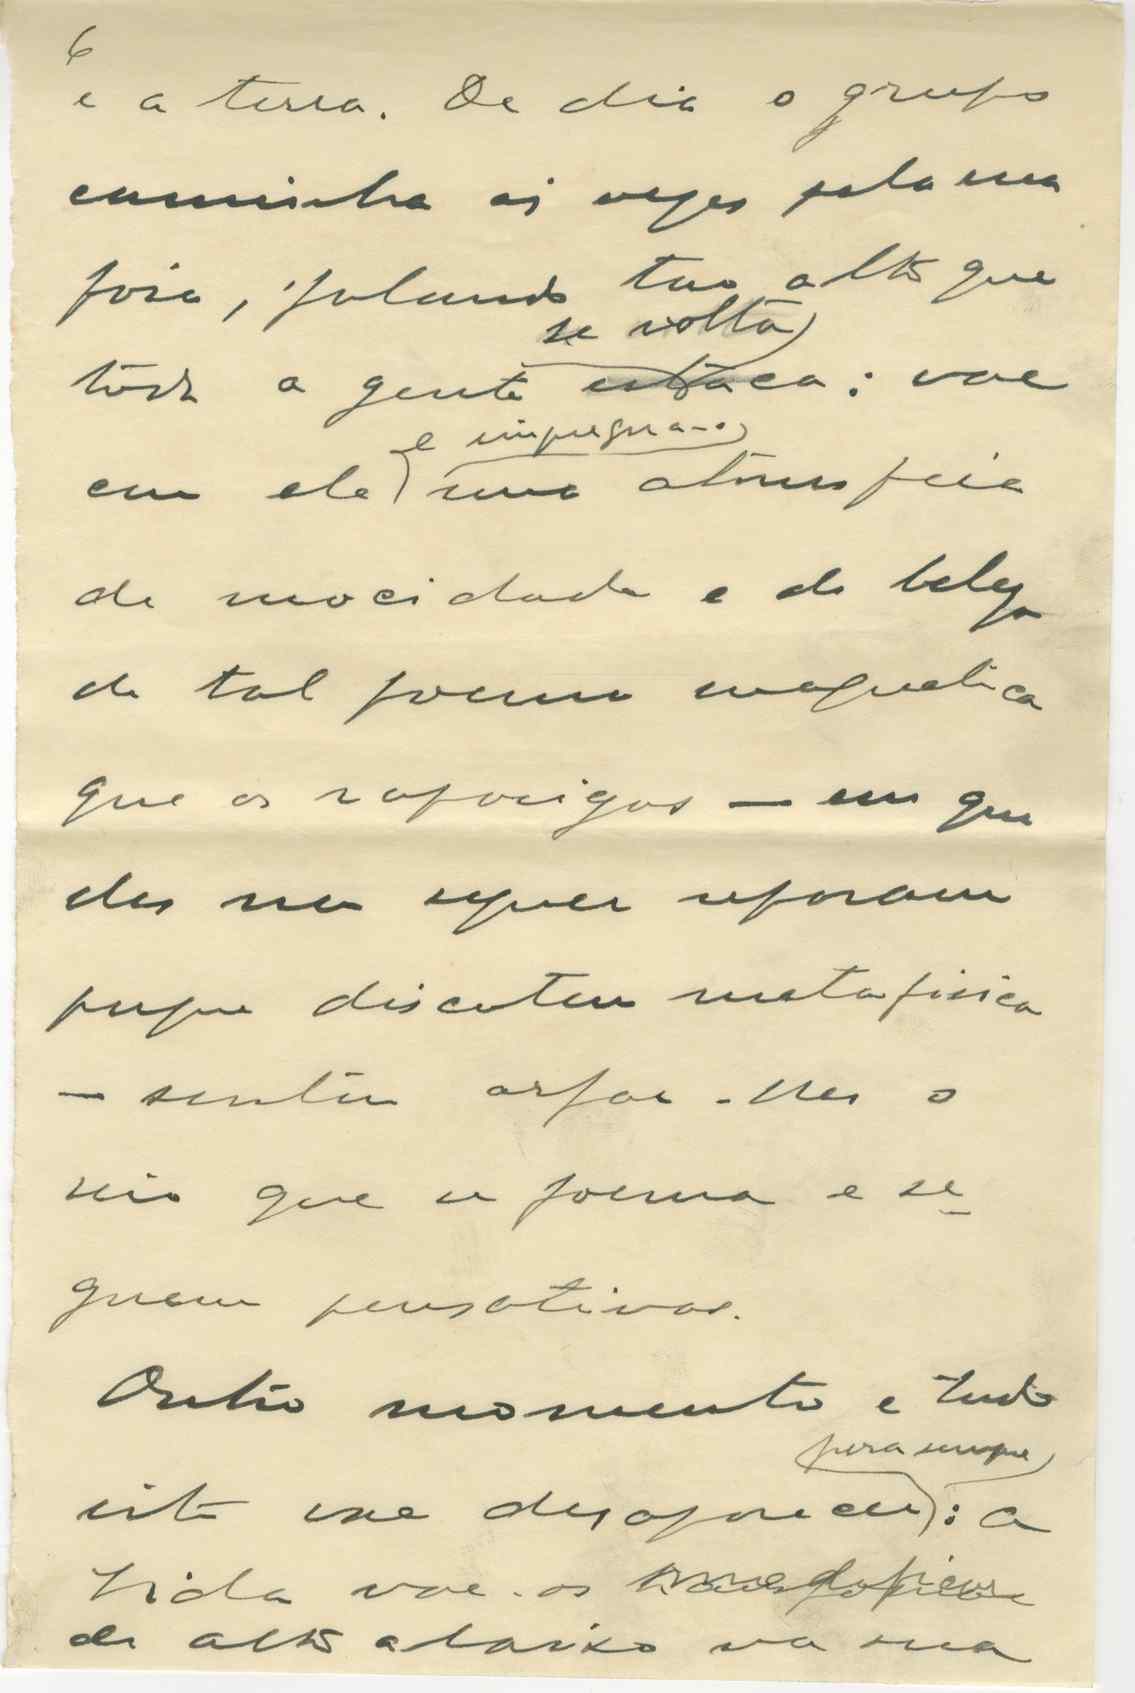 6
e a terra. De dia o grupo
caminha ás vezes pela rua
fora, falando tão alto que
se volta
toda a gente estaca: vae
e impregna-o
em ele uma atmosfera
de mocidade e de beleza
de tal forma magnetica
que as raparigas — em que
eles nem sequer reparam
porque discutem metafisica
— sentem arfar-lhes o
seio que se forma e se
guem pensativas.
Outro momento e tudo
para sempre
isto vae desaparecer: a
Vida vae-os
de alto abaixo na sua